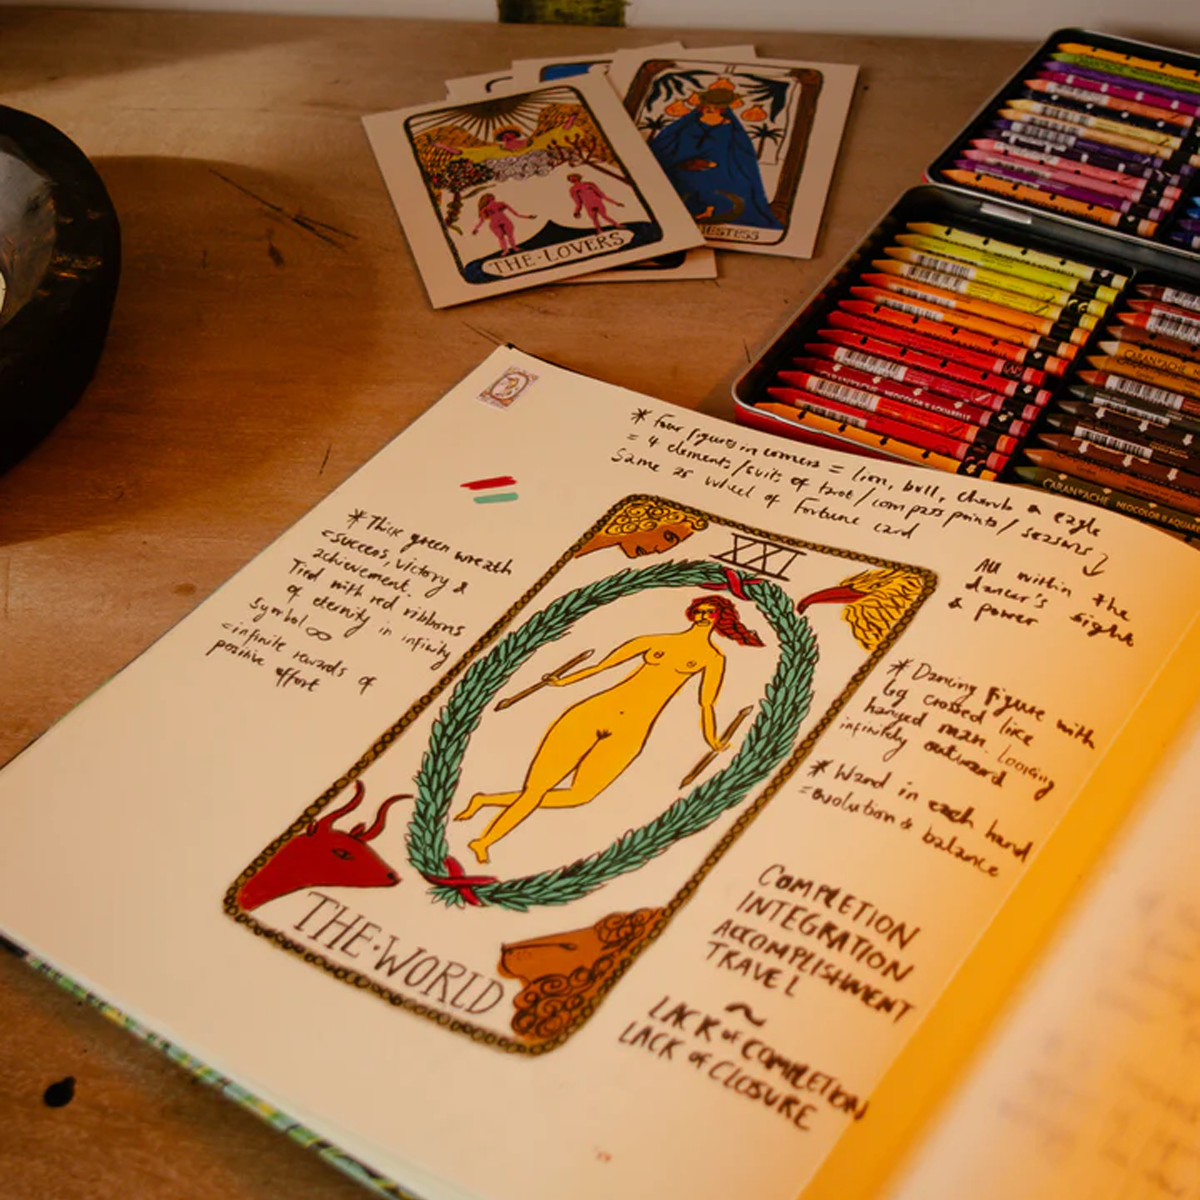 THE·LOVERS
* Four figures in corners = lion, bull, cherub & eagle
= 4 elements/suits of tarot/compass points/seasons
Same as wheel of Fortune card
All within the
dancer's sight
& power
* Thick green wreath
=success, victory &
achievement.
Tied with red ribbons
of eternity in infinity
Symbol ∞
=infinite rewards of
positive effort
XXI
* Dancing figure with
leg crossed like
hanged man. Looking
infinitely outward
* Wand in each hand
=evolution & balance
THE·WORLD
COMPLETION
INTEGRATION
ACCOMPLISHMENT
TRAVEL
~
LACK of COMPLETION
LACK of CLOSURE
CARAN D'ACHE NEOCOLOR II AQUARELLE
CARAN D'ACHE
CARAN D'ACHE NEOCOLOR II AQUARELLE